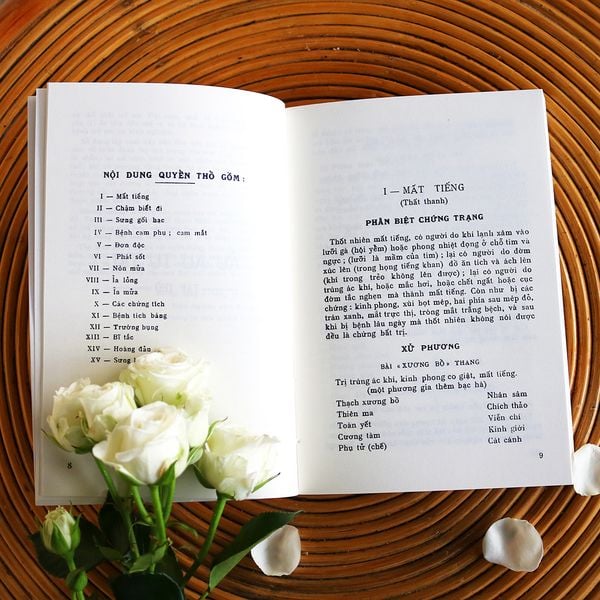 NỘI DUNG QUYỀN THỔ GỒM :
I — Mất tiếng
II — Chậm biết đi
III — Sưng gối hạc
IV — Bệnh cam phụ ; cam mắt
V — Đơn độc
VI — Phát sốt
VII — Nôn mửa
VIII — Ỉa lỏng
IX — Ỉa mửa
X — Các chứng tích
XI — Bệnh tích bàng
XII — Trướng bụng
XIII — Bĩ tắc
XIV — Hoàng đản
XV — Sưng
8
I — MẤT TIẾNG
(Thất thanh)
PHÂN BIỆT CHỨNG TRẠNG
Thốt nhiên mất tiếng, có người do khí lạnh xâm vào
lưỡi gà (hội yểm) hoặc phong nhiệt động ở chỗ tim và
ngực ; (lưỡi là mầm của tim) ; lại có người do đờm
xúc lên (trong họng tiếng khan) đồ ăn tích và ách lên
(khí trong trẻo không lên được) ; lại có người do
trúng ác khí, hoặc mắc hơi, hoặc chết ngất hoặc cục
đờm tắc nghẹn mà thành mất tiếng. Còn như bị các
chứng : kinh phong, xùi bọt mép, hai phía sau mép đỏ,
trán xanh, mắt trực thị, tròng mắt trắng bệch, và sau
khi bị bệnh lâu ngày mà thốt nhiên không nói được
đều là chứng bất trị.
XỬ PHƯƠNG
BÀI «XƯƠNG BỒ» THANG
Trị trúng ác khí, kinh phong co giật, mất tiếng.
(một phương gia thêm bạc hà)
Thạch xương bồ Nhân sâm
Thiên ma Chích thảo
Toàn yết Viễn chí
Cương tàm Kinh giới
Phụ tử (chế) Cát cánh
9